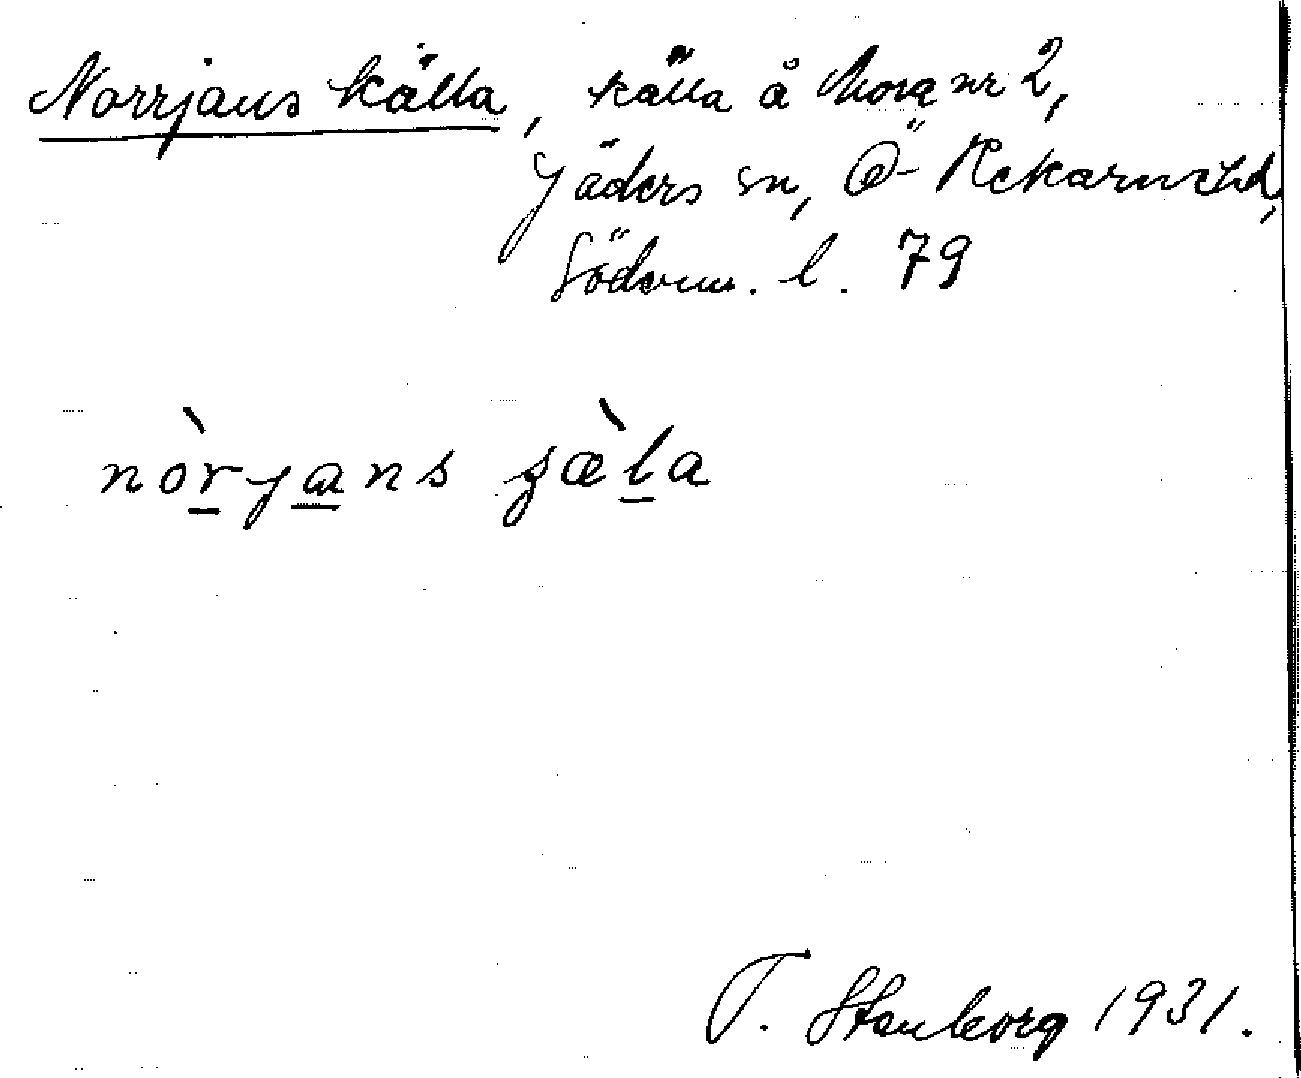 Norrjans källa, källa å Mora nr 2,
Jäders sn, Ö Rekarne hd,
Söderm. l. 79
nòrjans ʂæ̀la
T. Stenborg 1931.